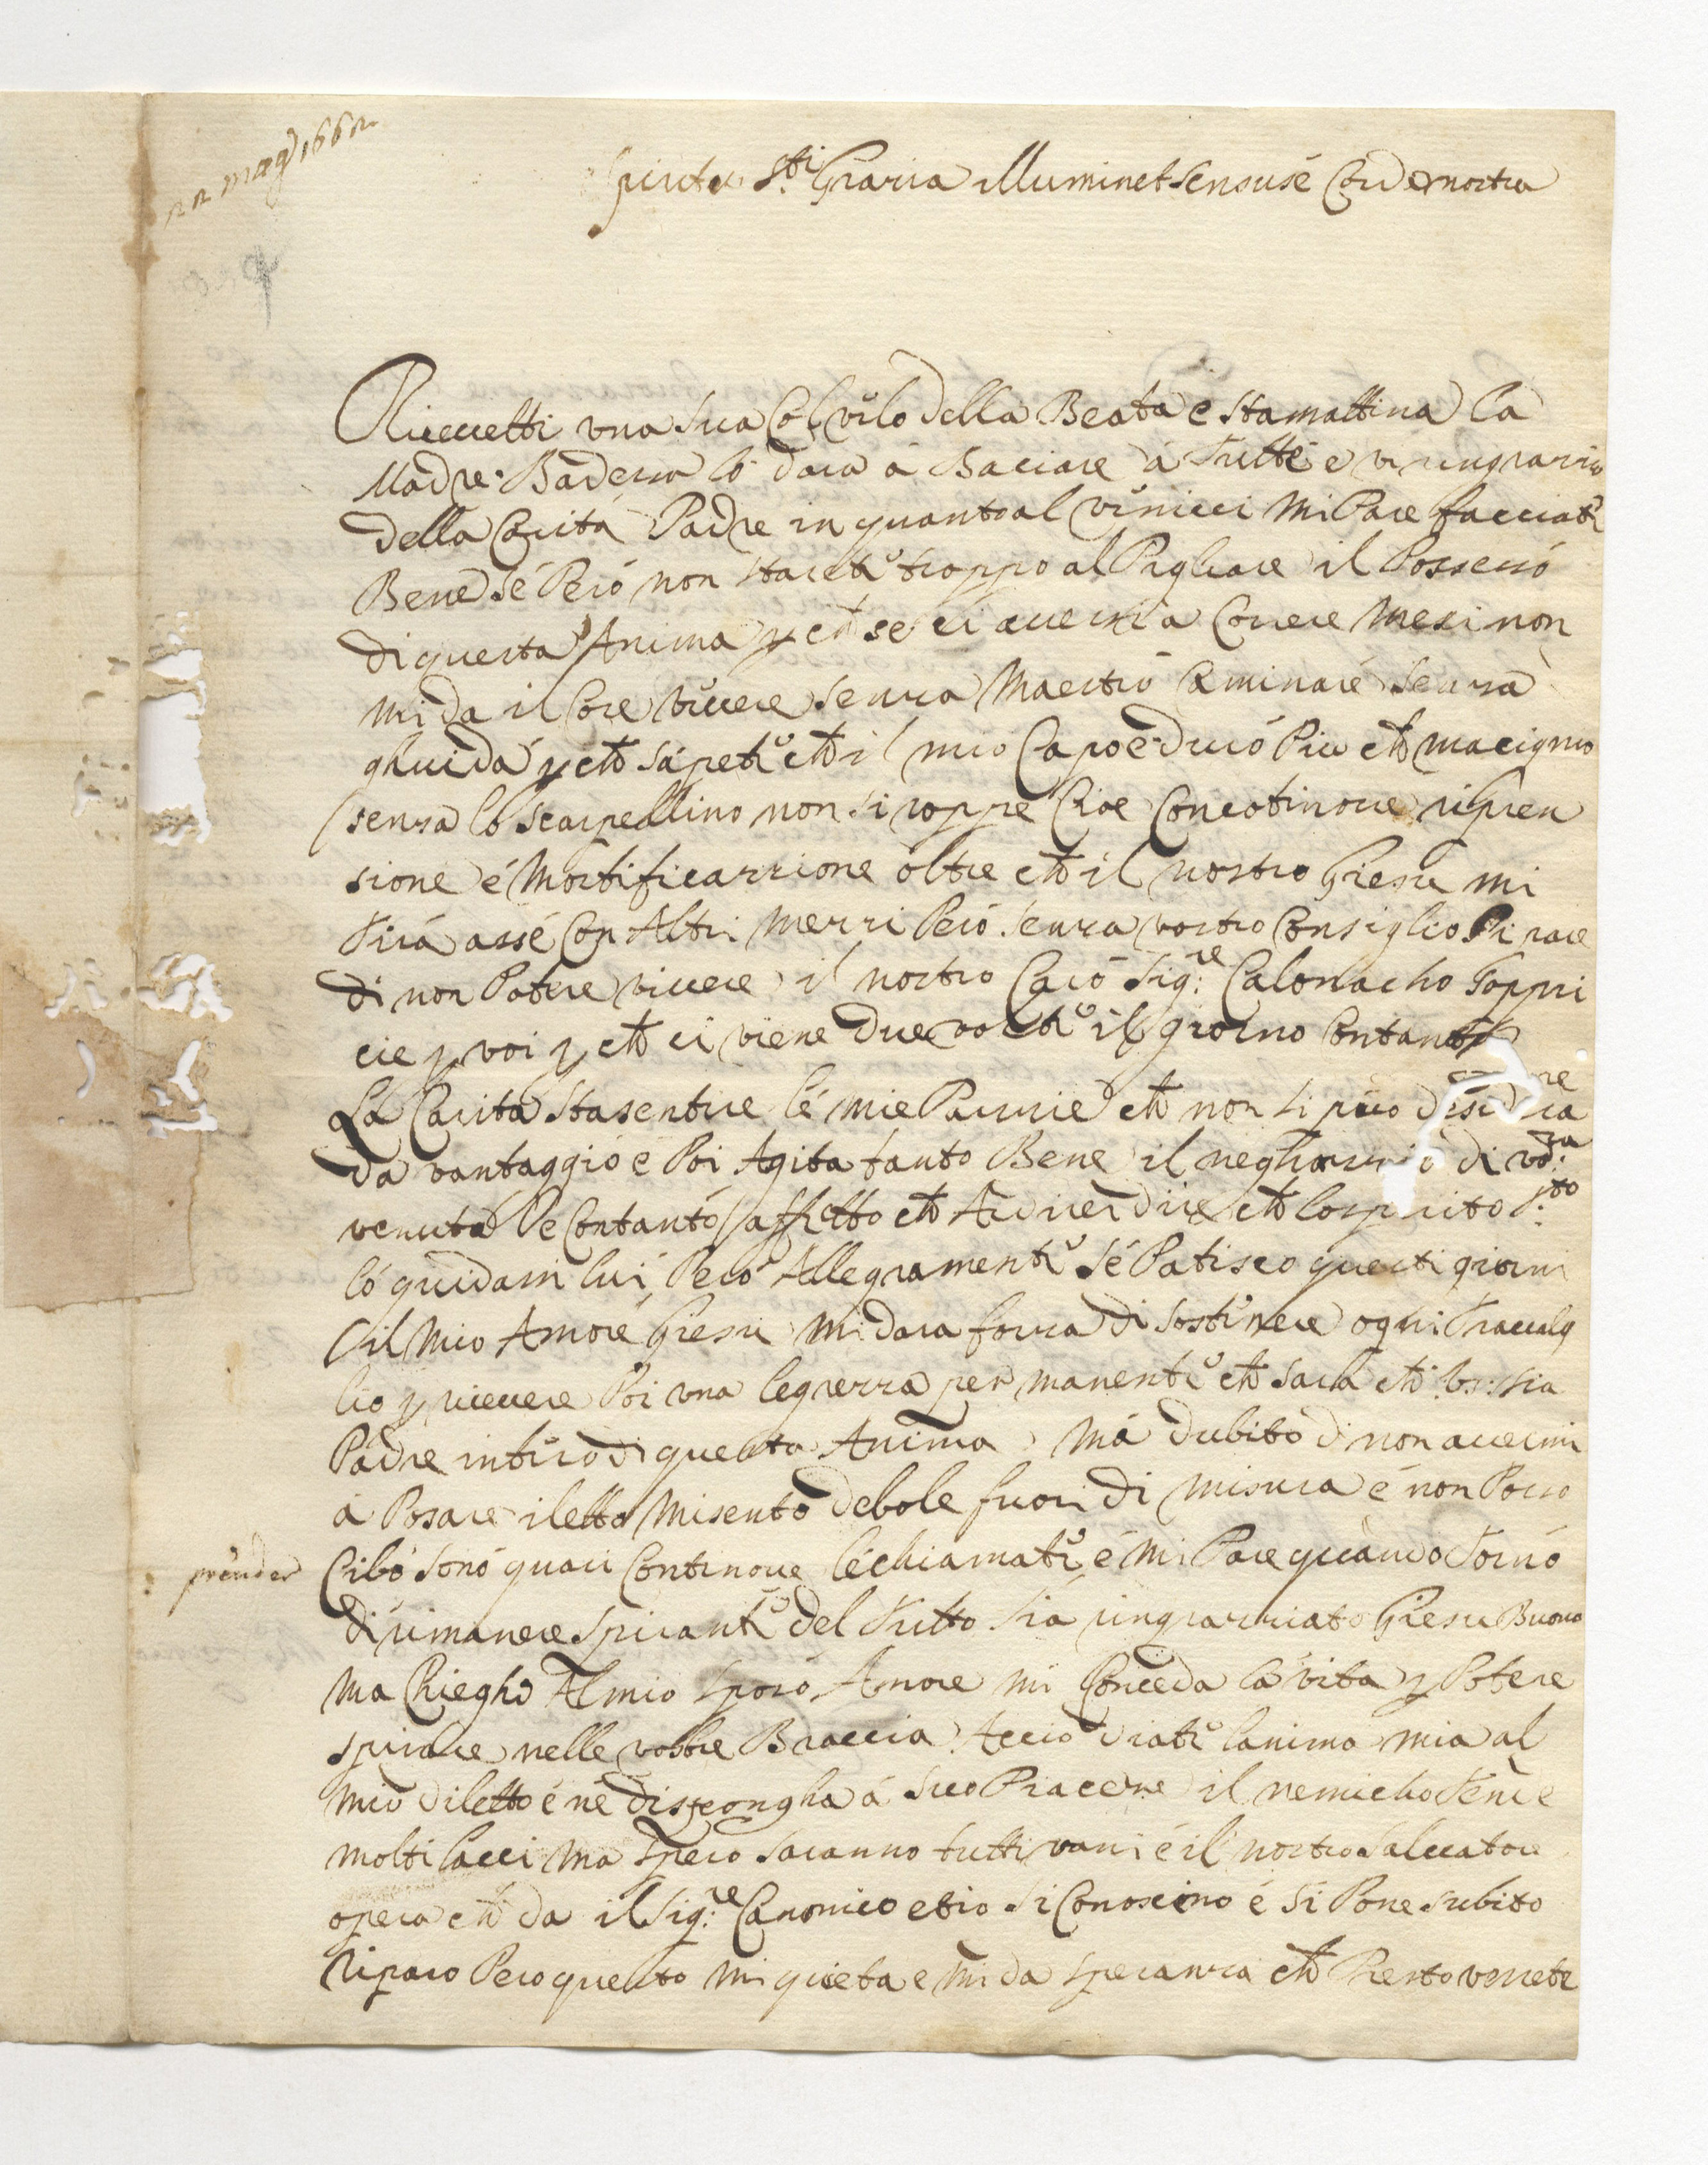 22 mag 1662
Spiritu Sti Grazia illuminet sensus é Corde nostra
Riceuetti una sua Col uelo della Beata e stamattina la
Madre Badessa lo dara á Baciare á Tutte e vi ringrazzio
della Carita Padre in quanto al Mi Pare facciate
Bene sé Peró non starete troppo al Pigliare il Possessó
di questa Anima p che se ci auessi a Corere Mesi non
mi da il Core viuere senza Maestró Caminaré senza
ghuida p che sapete che il mio Capo é duró Piu che macigno
senza ló scarpellino non si roppe Cioe Concotinoue ripren
sione é Mortificazzione oltre che il nostro Giesu mi
Tirá assé Con Altri Mezzi Peró senza vostro Consiglio Mi pare
di non Potere viuere il nostro Caró Sig.re Calonacho Soppri
cie p voi p che ci viene due volte il giorno Contanta
La Carita sta sentire lé mie Pazzie che non si puo deside rare
da vantaggió e Poi Agita tanto Bene il neghozzio di vo:ra
venuta e Contantó affetto che Ardirei dire che lo spirito S:to
ló guida in lui Peró Allegramente sé Patisco questi giorni
il Mio Amore Giesu mi dara forza di sostenere ogni Trauagl
lio p riceuere Poi una legrezza per manente che sara che Vs: sia
Padre intero di questa Anima Má dubito di non auermi
á Posare iletto Misento debole fuori di misura é non Posso
prender Cibo sonó quasi Continoue lé chiamate é Mi Pare quando Tornó
di rimanere spirante del Tutto sia ringrazziato Giesu Buono
ma Priegho Al mio sposó Amore mi Conceda la vita p Potere
spirare nelle vostre Braccia Acció diate lanima mia al
mio diletto é né dispongha á suo Piacere il nemicho Tende
molti lacci ma spero saranno tutti vani é il nostro Saluatore
opera che da il Sig:re Canonico et io si Conoscino é si Pone subito
riparo Pero questo mi quieta e mi da speranza che Presto verrete